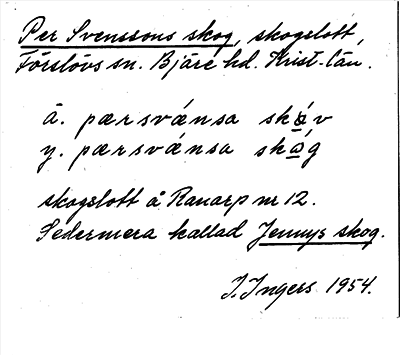 Per Svenssons skog, skogslott,
Förslövs sn. Bjäre hd. Krist. län.
ä. pærsvǽnsa skáv
y. pærsvǽnsa skág
skogslott å Ranarp nr 12.
Sedermera kallad Jennys skog.
I. Ingers 1954.